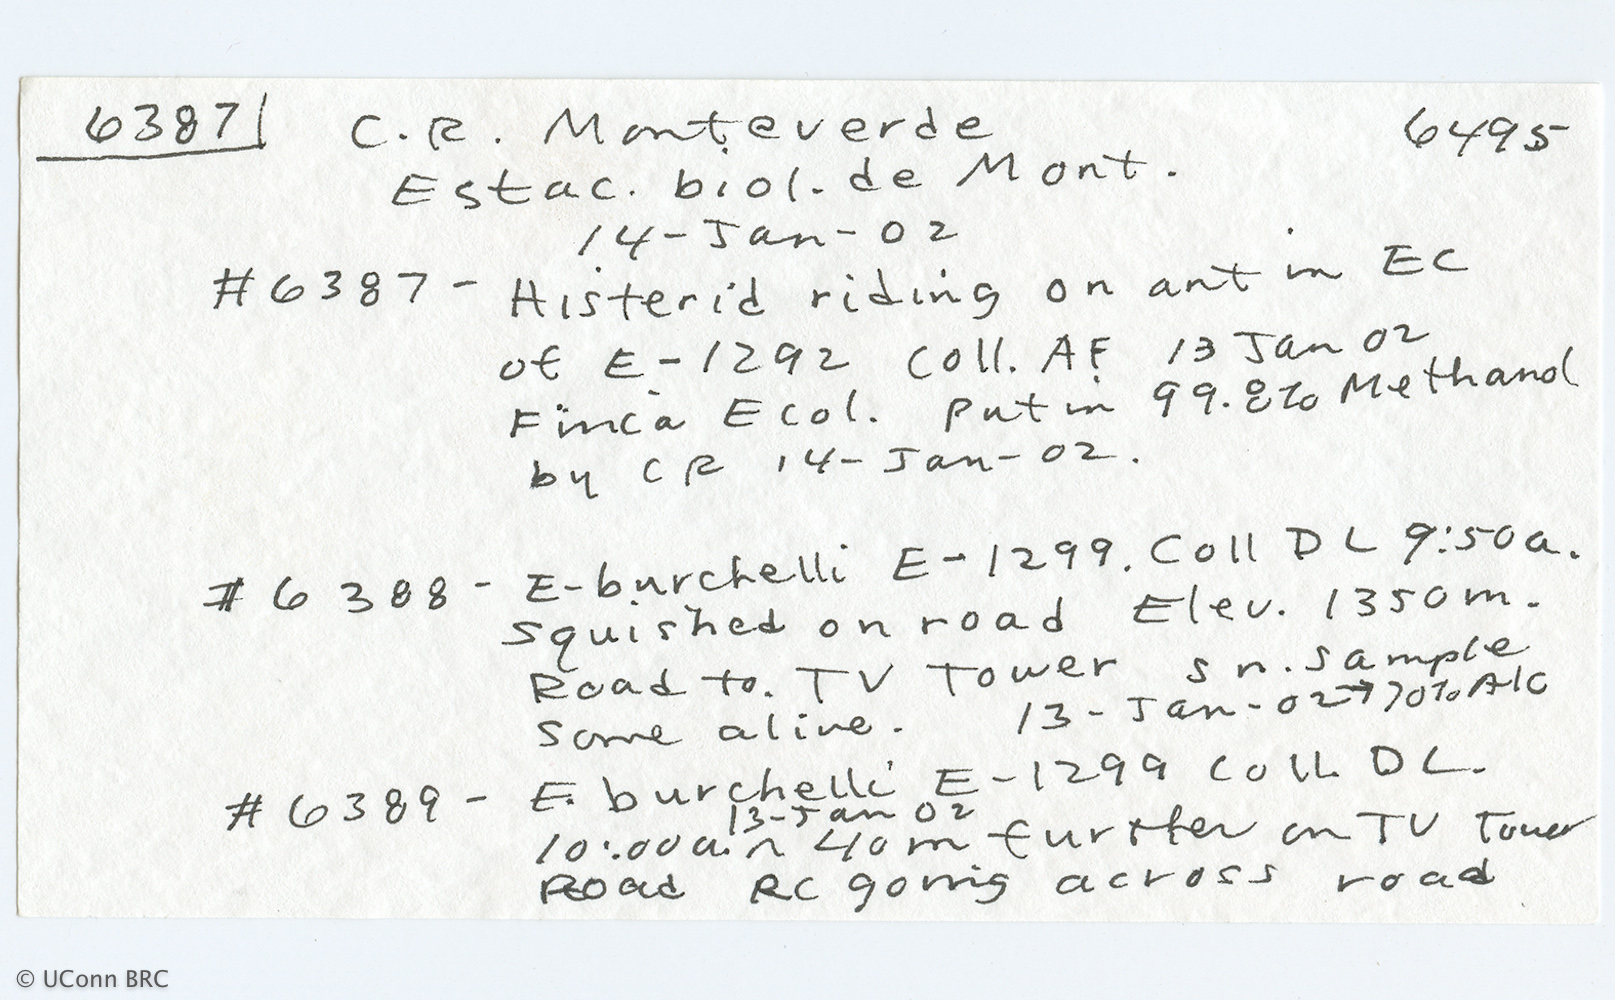 6387 C.R. Monteverde 6495
Estac. biol. de Mont.
14-Jan-02
#6387 - Histerid riding on ant in EC
of E-1292 Coll. AF 13 Jan 02
Finca Ecol. Put in 99.8% Methanol
by CR 14-Jan-02.
#6388 - E-burchelli E-1299. Coll DL 9:50a.
Squished on road Elev. 1350m.
Road to. TV Tower sn. sample
Some alive. 13-Jan-02→70% Alc
#6389 - E. burchelli E-1299 Coll. DL.
13-Jan 02
10:00a. ~ 40m further on TV Tower
Road RC going across road
© UConn BRC